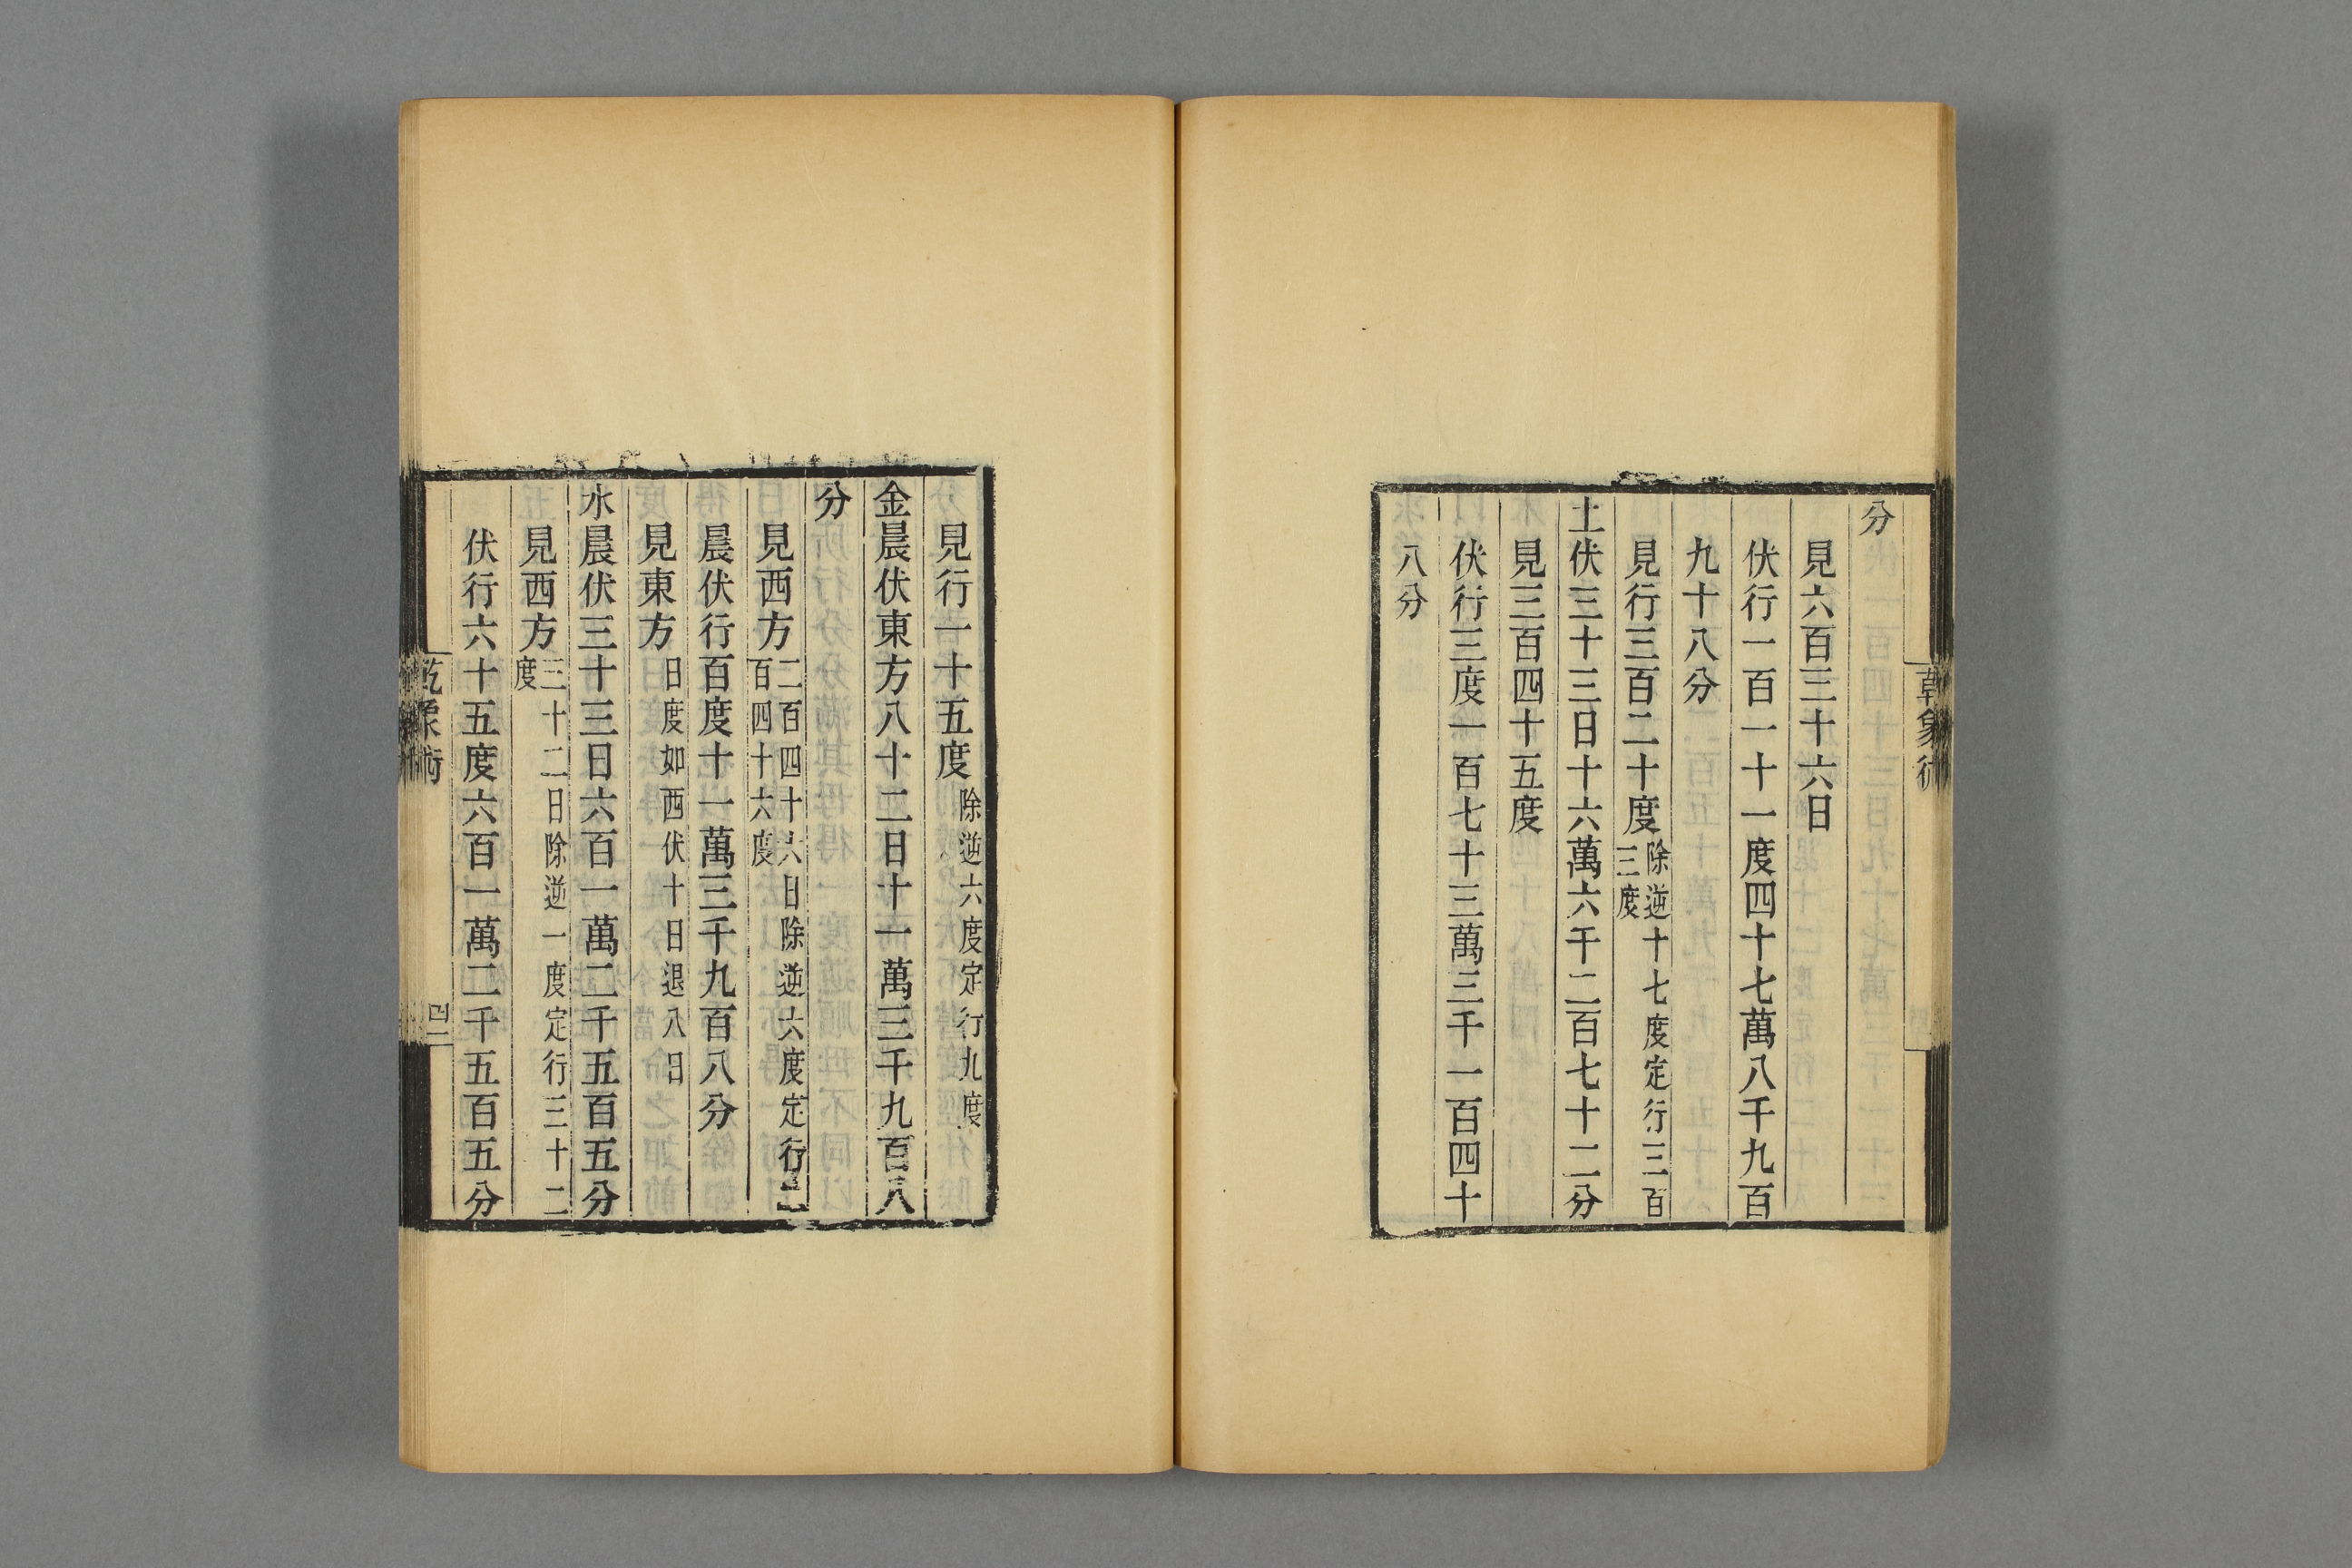 分
見六百三十六日
伏行一百一十一度四十七萬八千九百
九十八分
見行三百二十度除逆十七度定行三百
三度
土伏三十三日十六萬六千二百七十二分
見三百四十五度
伏行三度一百七十三萬三千一百四十
八分
見行一十五度除逆六度定行九度
金晨伏東方八十二日十一萬三千九百八
分
見西方二百四十六日除逆六度定行二
百四十六度
晨伏行百度十一萬三千九百八分
見東方日度如西伏十日退八日
水晨伏三十三日六百一萬二千五百五分
見西方三十二日除逆一度定行三十二
度
伏行六十五度六百一萬二千五百五分
乾象術